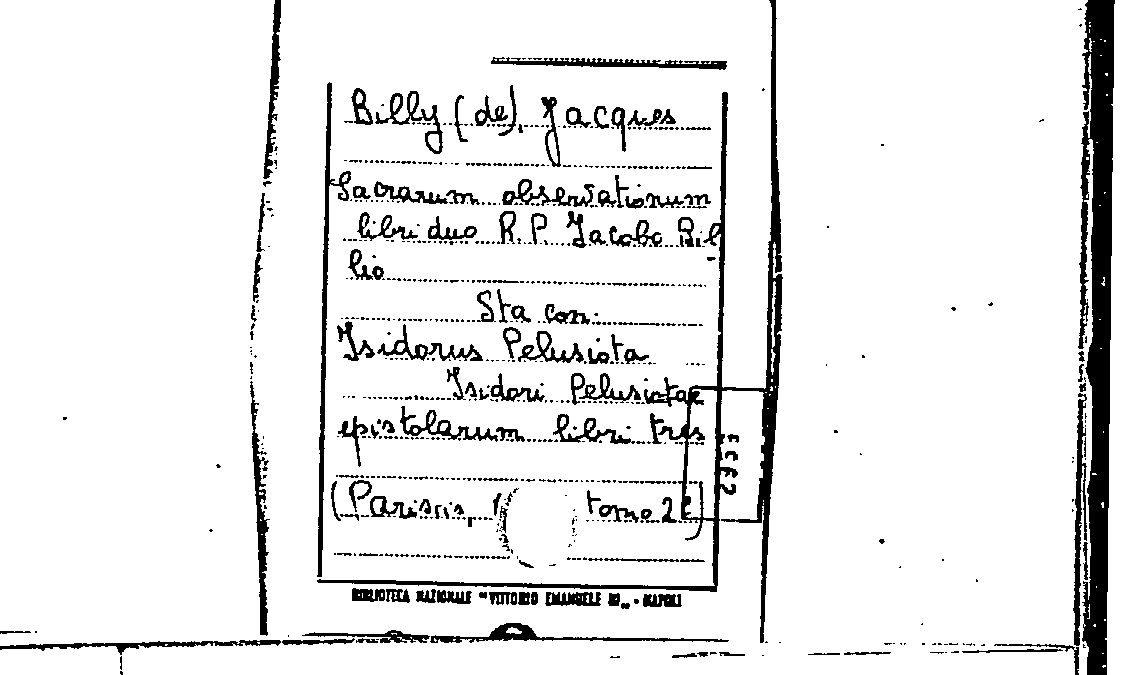 Billy (de), Jacques
Sacrarum observationum
libri duo R. P. Jacobo Bil
lio
Sta con:
Isidorus Pelusiota
Isidori Pelusiotae
epistolarum libri tres
(Parisiis, 1 tomo 2º)
BIBLIOTECA NAZIONALE "VITTORIO EMANUELE III„ - NAPOLI